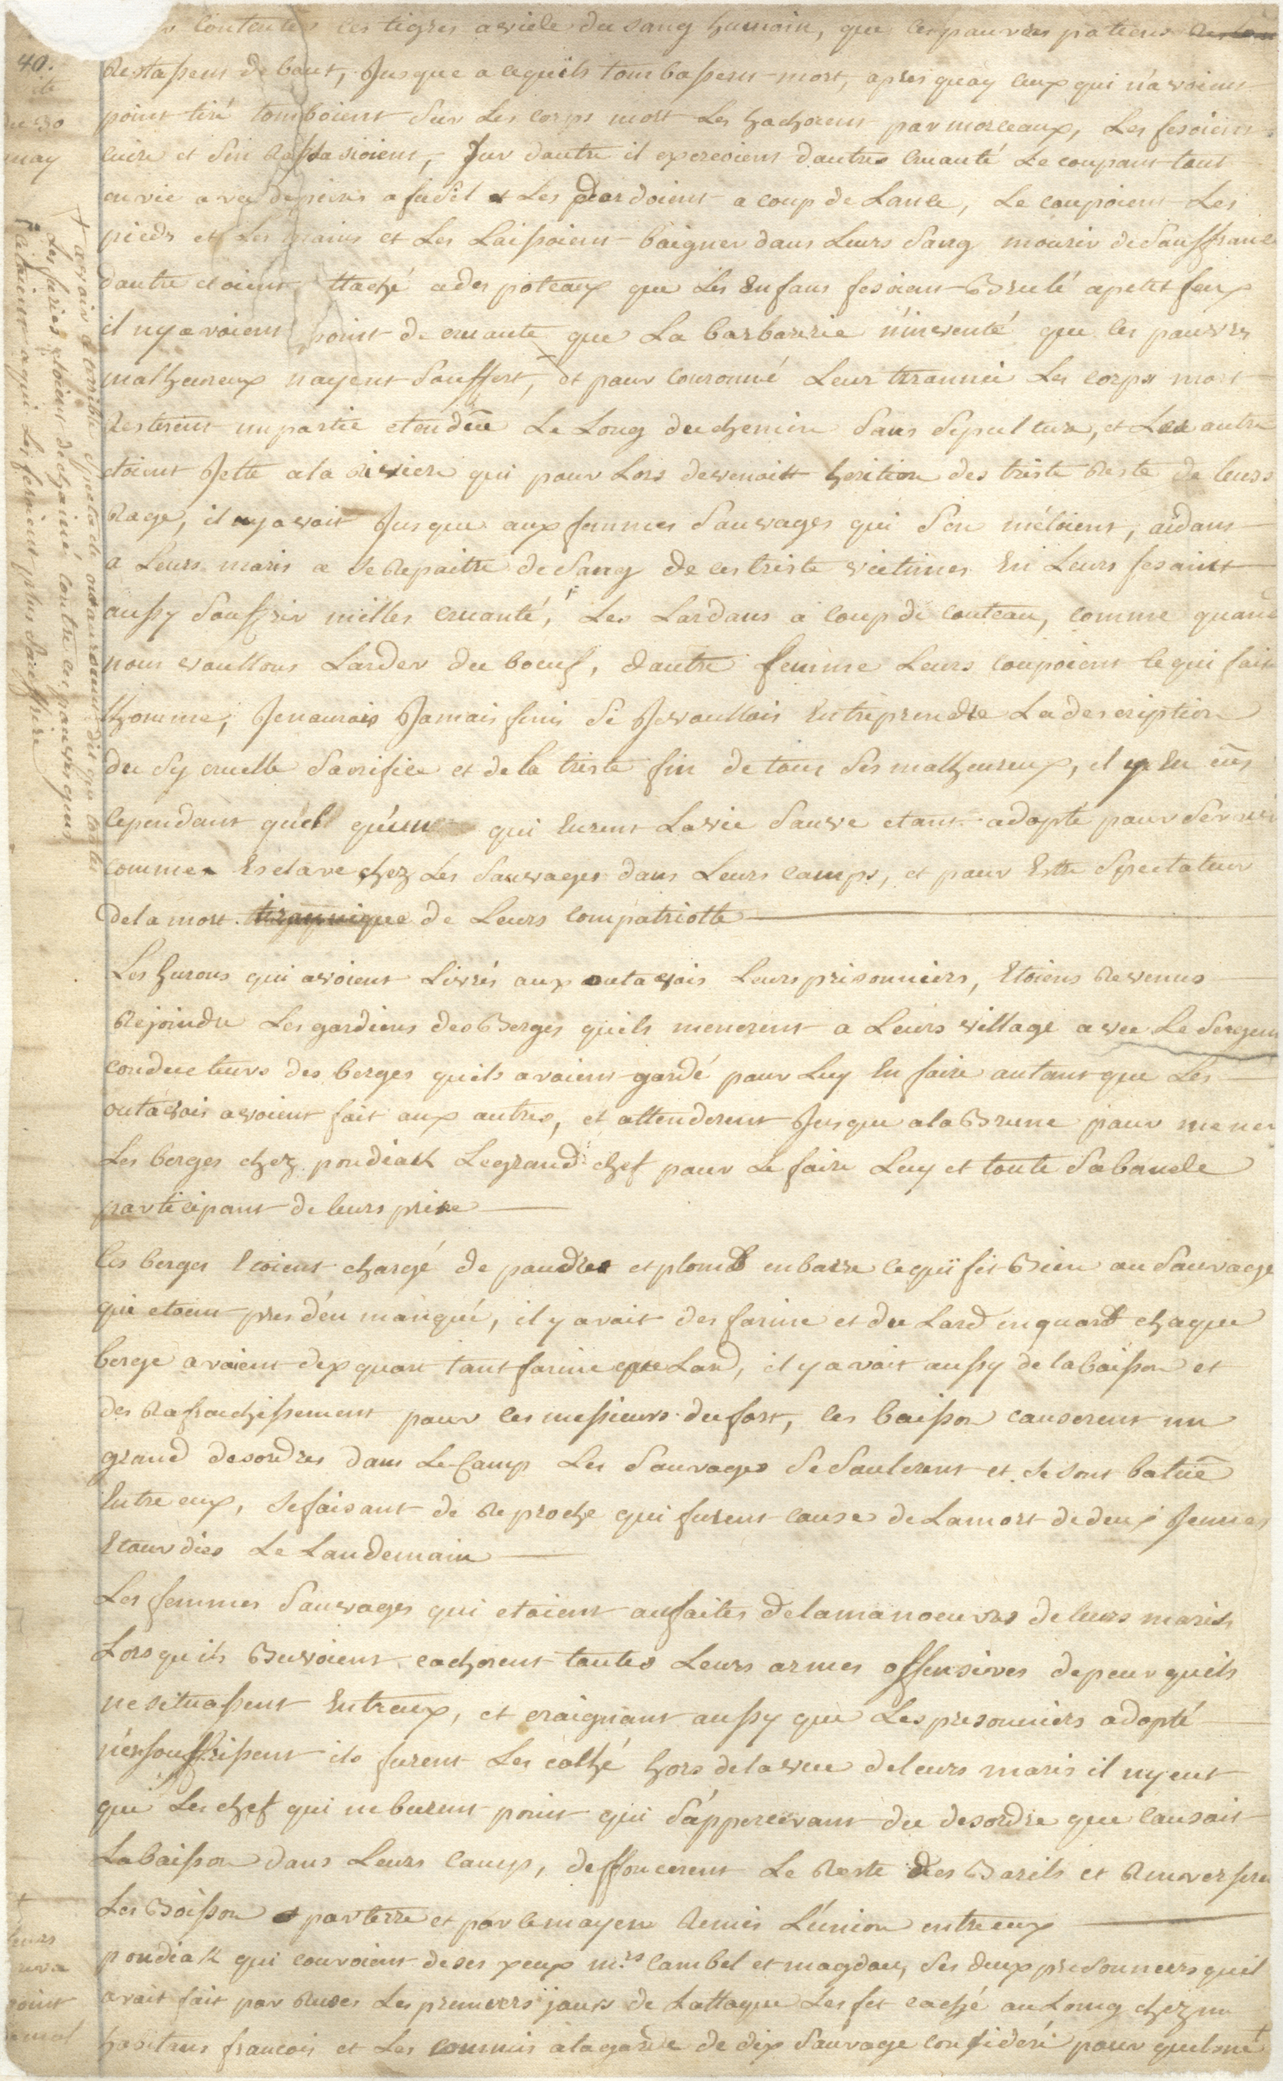 contente ces tigres avide du sang humain, que les pauvres patiens
40.
Restassent de bout, Jusque a cequils tombassent mort, apres quay ceux qui n'avoient
point tiré tomboient Sur Les corps mort Les hachoient par morceaux, Les fesoient
du 30
may
cuire et S'en Rassasioient, Sur dautre il exercoient dautres cruauté Le coupant tout
en vie avec des pierres a fusil et Les dardoient a coup de Lance, Le coupoient Les
pieds et Les mains et Les Laissoient Baigner dans Leurs Sang mourir de Souffrance
dautre etoient attaché a des poteaux que Les Enfans fesoient Brulé a petit feux
il ny avoient point de cruauté que La barbarie n'inventé que ces pauvres
malheureux nayent Souffert, et pour couronné Leur tirannie Les corps mort
Resterent un partie etenduë Le Long du chemin Sans Sepulture, et Les autre
etoient Jette a la Riviere qui pour Lors devenoitt heritiere des triste Reste de leurs
Rage, il ny avoit Jusque aux femmes Sauvages qui S'en mêloient, aidans
a Leurs maris a se Repaitre de Sang de ces triste victimes En Leurs fesaint
aussy Souffrir milles cruauté, Les Lardans a coup de couteau, comme quand
nous voullons Larder du boeuf, dautre femme Leurs coupoient ce qui fait
Lhomme, Je naurais Jamais finis Si Je voullais Entreprendre La description
du Sy cruelle Sacrifice et de la triste fin de tous Ses malheureux, il y En eus
cependant quel qu'un qui Eurent La vie Sauve etant adopté pour Servir
comme Esclave chez Les Sauvages dans Leurs camps, et pour Estre Spectateur
de la mort tirannique de Leurs compatriotte
Les hurons qui avoient Livrés aux outavois Leurs prisonniers, Etoiens Revenus
Rejoindre Les gardiens des Berges quils menerent a Leurs village avec Le Sergent
conducteurs des berges quils avoient gardé pour Luy En faire autant que Les
outavois avoient fait aux autres, et attenderent Jusque a la Brune pour mener
Les berges chez pondiak Le grand chef pour Le faire Luy et toute Sa bande
participant de leurs prise
Ces berges Etoient chargé de poudre et plomb en barre ce qui fit Bien au Sauvage
qui etoient pres d'en manqué, il y avait des farine et du Lard en quard chaque
berge avoient dix quart tant farine que Lard, il y avoit aussy de la boisson et
des Rafraichissement pour les messieurs du fort, les boisson causerent un
grand desordres dans Le Camp Les Sauvages Se Saulerent et Se sont batue
Entre eux, Se faisant de Reproche qui furent cause de La mort de deux Jeunes
Etourdies Le Laudemain
Les femmes Sauvages qui etoient au faites de la manoeuvres de leurs maris
Lorsqu ils Buvoient cacherent toutes Leurs armes offensives de peur quils
ne se tuassent Entreux, et craignant aussy que Les prisonniers adopté
n'en souffrissent ils furent Les caché hors de la vue de leurs maris il ny eut
que Les chef qui ne burent point qui S'appercevant du desordre que causait
La boisson dans Leurs camp, deffoncerent Le Reste des Barils et Renverserent
Les Boisson par terre et par le mayen Remis L'union entre eux
pondiak qui couvoient de ses yeux mrs Cambel et magdau, Ses deux prisonniers quil
avait fait par Ruses Les premiers jours de Lattaque Les fit caché au Long chez un
habitans francois et Les commis à la garde de dix Sauvage confideré pour quils ne
avoir terrible
Les furies etoient dechainé contre ces pauvres gens
a qui Les fesoient plus Souffrire
leurs
point